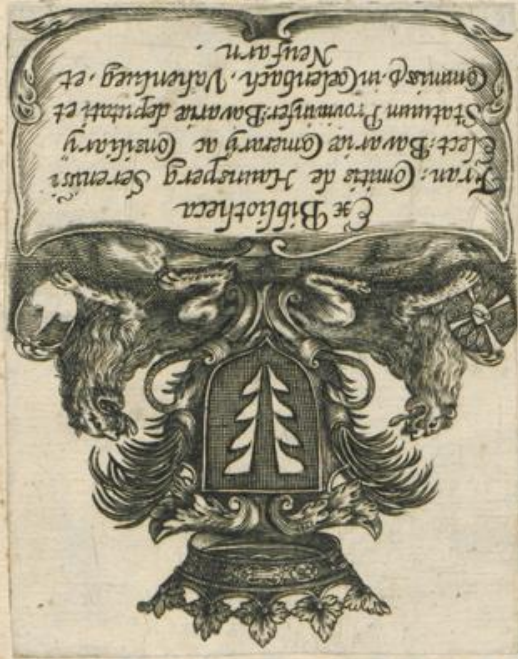 Ex Bibliotheca
Fran: Comitis de Haunsperg Serenissi
Elect: Bavariæ Camerarÿ ac Consiliarÿ
Statuum Provin: infer: Bavariæ deputati et
D. in Goelenbach, Vahenlueg. et
Neufarn.